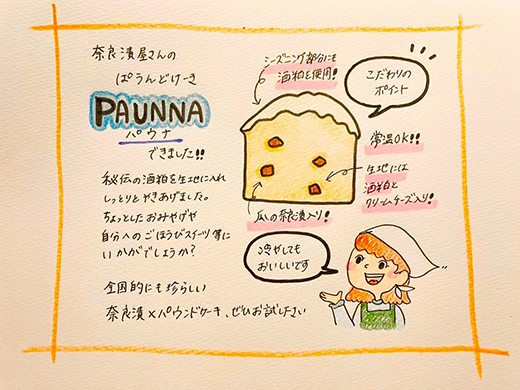 奈良漬屋さんの
ぱうんどけーき
PAUNNA
パウナ
できました!!
秘伝の酒粕を生地に入れ
しっとりとやきあげました。
ちょっとしたおみやげや
自分へのごほうびスイーツ等に
いかがでしょうか?
全国的にも珍らしい
奈良漬×パウンドケーキ、ぜひお試し下さい
シーズニング部分にも
酒粕を使用!
こだわりの
ポイント
常温OK!!
生地には
酒粕と
クリームチーズ入り!
瓜の奈良漬入り!
冷やしても
おいしいです